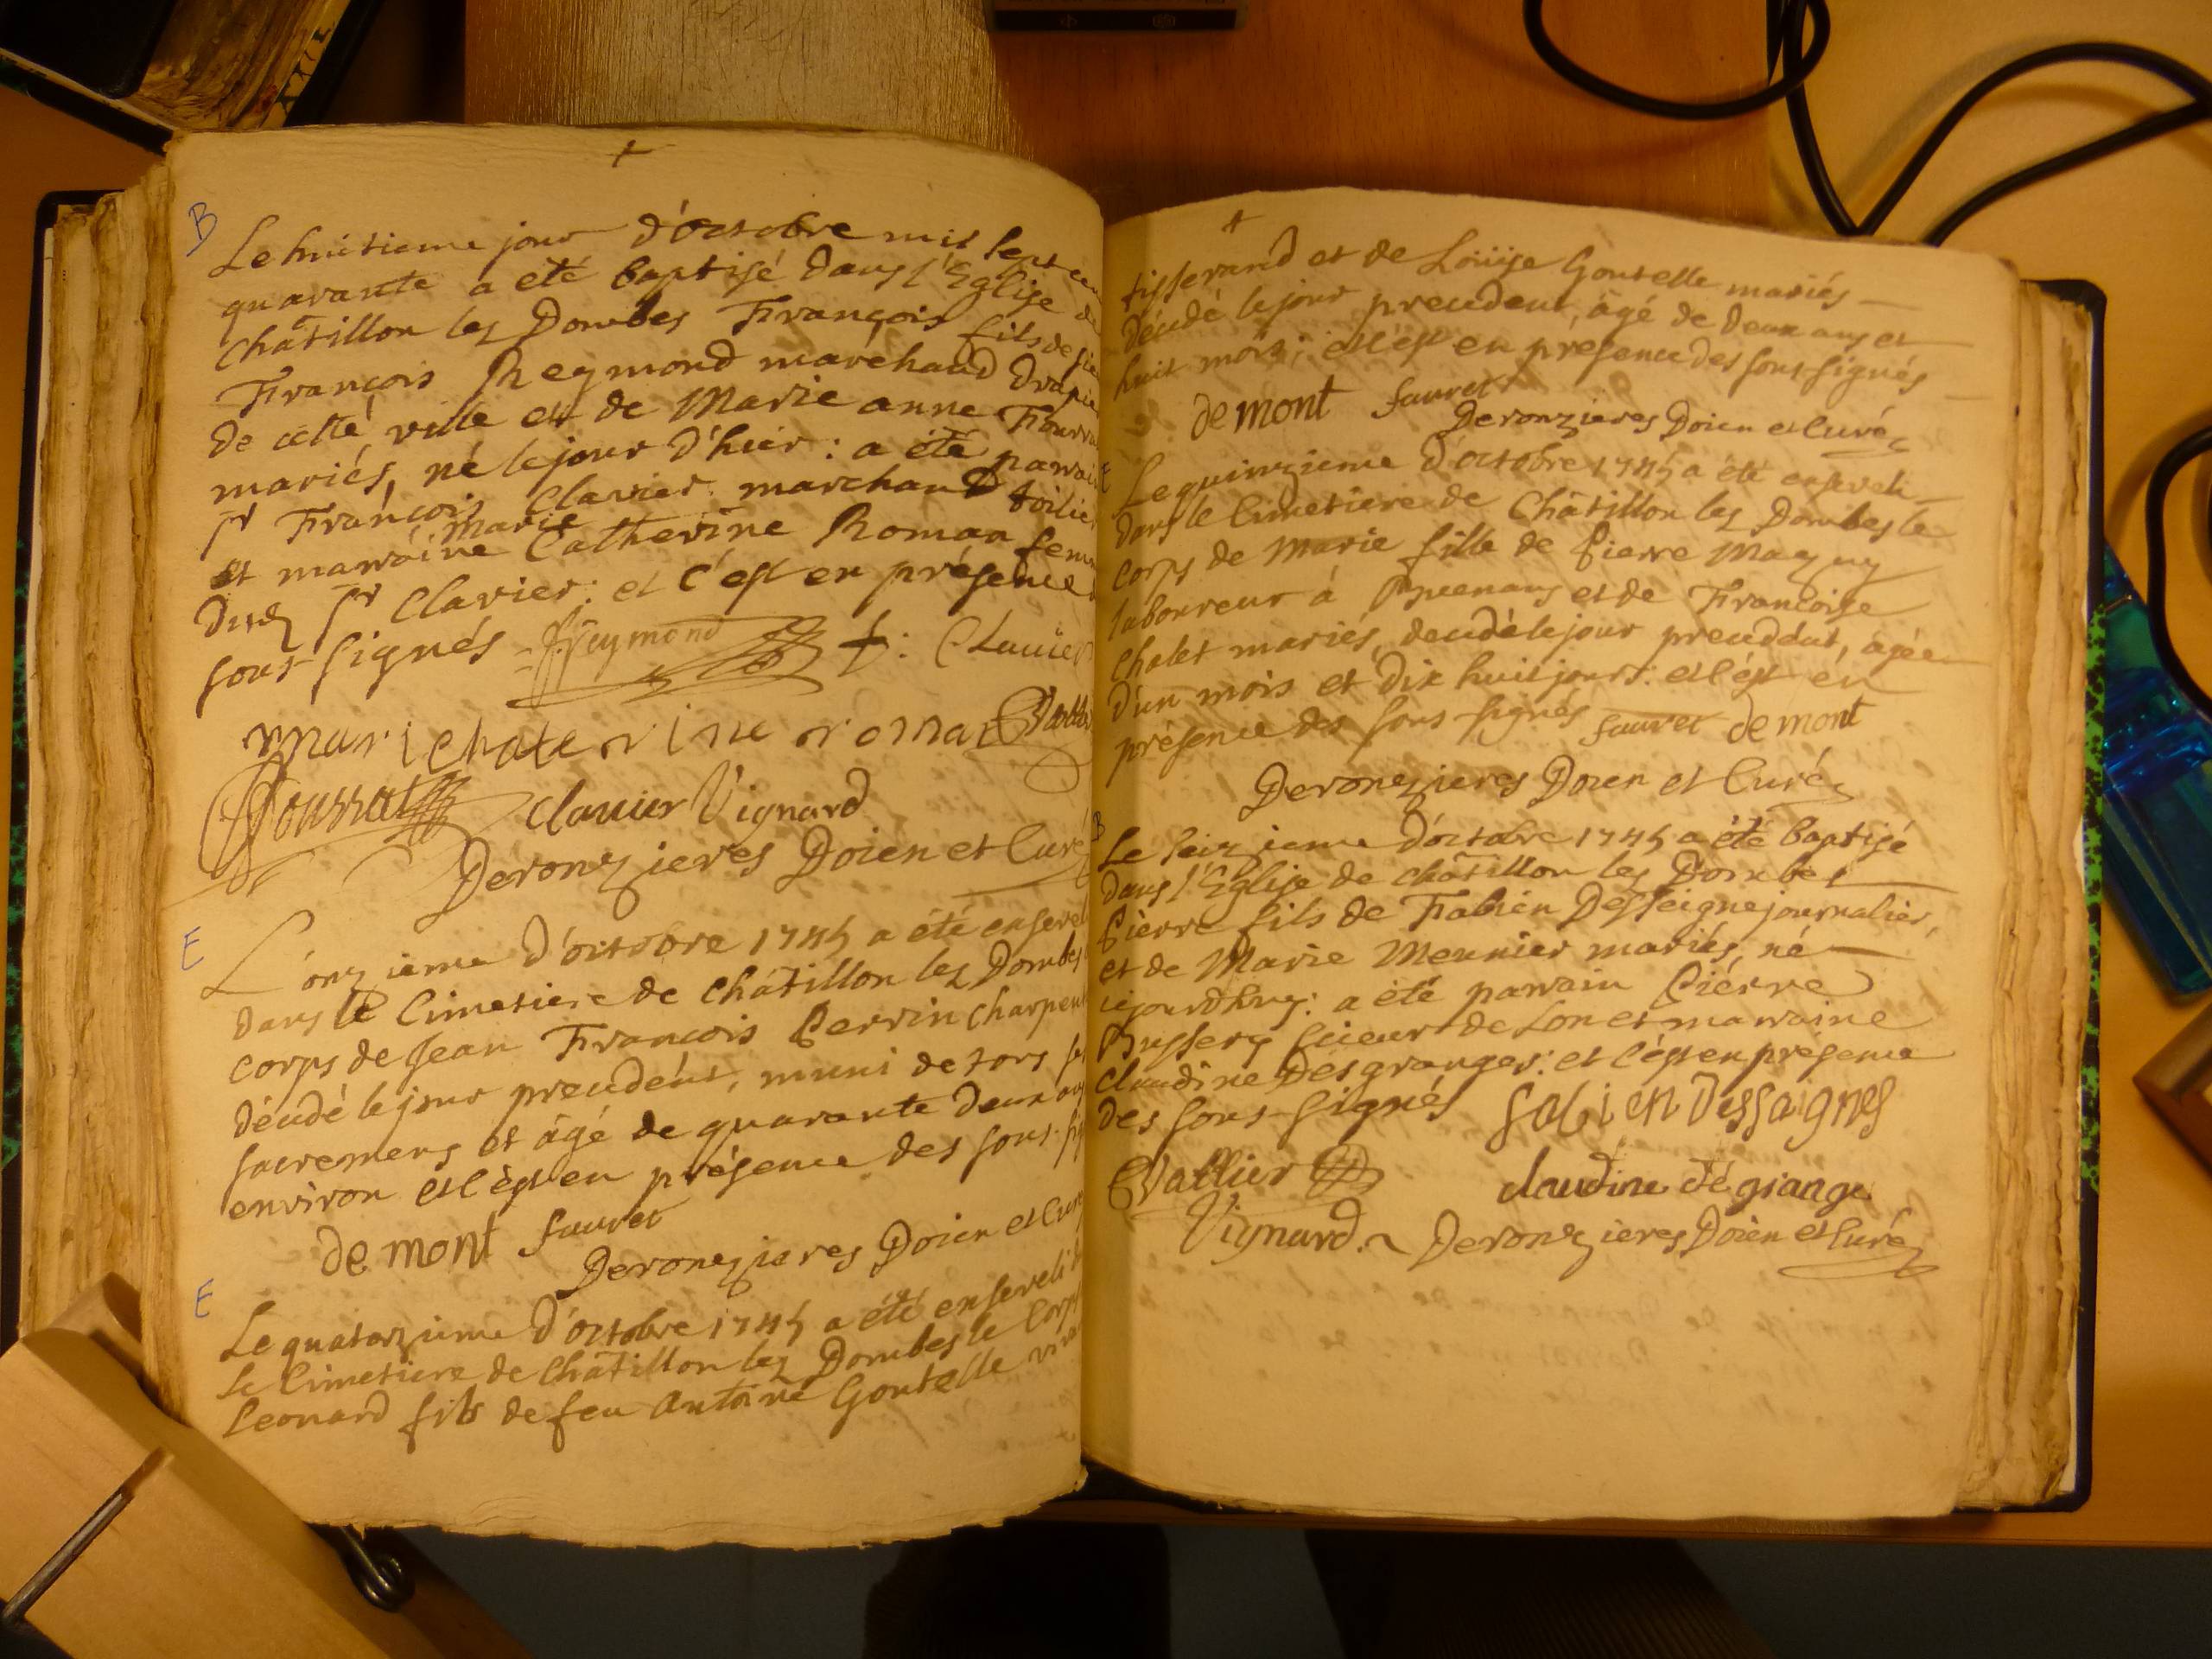 B
Le huitieme jour d'octobre mil sept cen
quarante a eté baptisé dans l'Eglise de
Châtillon les Dombes François fils de sieu
François Reymond marchand drapie
de cette ville et de Marie anne Fourra
mariés, né le jour d'hier : a été parrai
sr François Clavier marchand toilier
Marie
et marraine Catherine Roman femm
dud sr Clavier : et c'est en présence
sous-signés Reymond f : Clauier
mari chaterine roman Vallier
Fourrat clauier Vignard
Deronzieres Doien et Curé
E
L'onzieme d'octobre 1745 a été enseveli
dans le Cimetiere de Châtillon les Dombes
corps de Jean François Perrin charpen
décedé le jour precedent, muni de tous se
sacremens et âgé de quarante deux ans
environ et c'est en présence des sous-sig
de mont sauret
Deronzieres Doien et Curé
E
Le quatorzieme d'octobre 1745 a été enseveli
le Cimetiere de Châtillon les Dombes le Corps
Leonard fils de feu Antoine Goutelle viva
tisserand et de Loüise Goutelle mariés
décedé le jour precedent, âgé de deux ans et
huit mois ; et c'est en présence des sous-signés
de mont sauret
Deronzieres Doien et Curé
E
Le quinzieme d'octobre 1745 a été enseveli
dans le Cimetiere de Châtillon les Dombes le
corps de Marie fille de Pierre Maguy
laboureur à et de Françoise
Chalet mariés, decedée le jour precedent, âgée
d'un mois et dix huit jours : et c'est en
présence des sous-signés sauret de mont
Deronzieres Doien et Curé
B
Le seizieme d'octobre 1745 a été baptisé
dans l'Eglise de châtillon les Dombes
Pierre fils de Fabien Desseigne journalier,
et de Marie Meunier mariés, né
cejourdhuy : a été parrain Piérre
Bussery scieur de Lon et marraine
Claudine Desgranges : et c'est en présence
des sous-signés fabien Dessaignes
Vallier claudine dégrange
Vignard. Deronzieres Doien et Curé